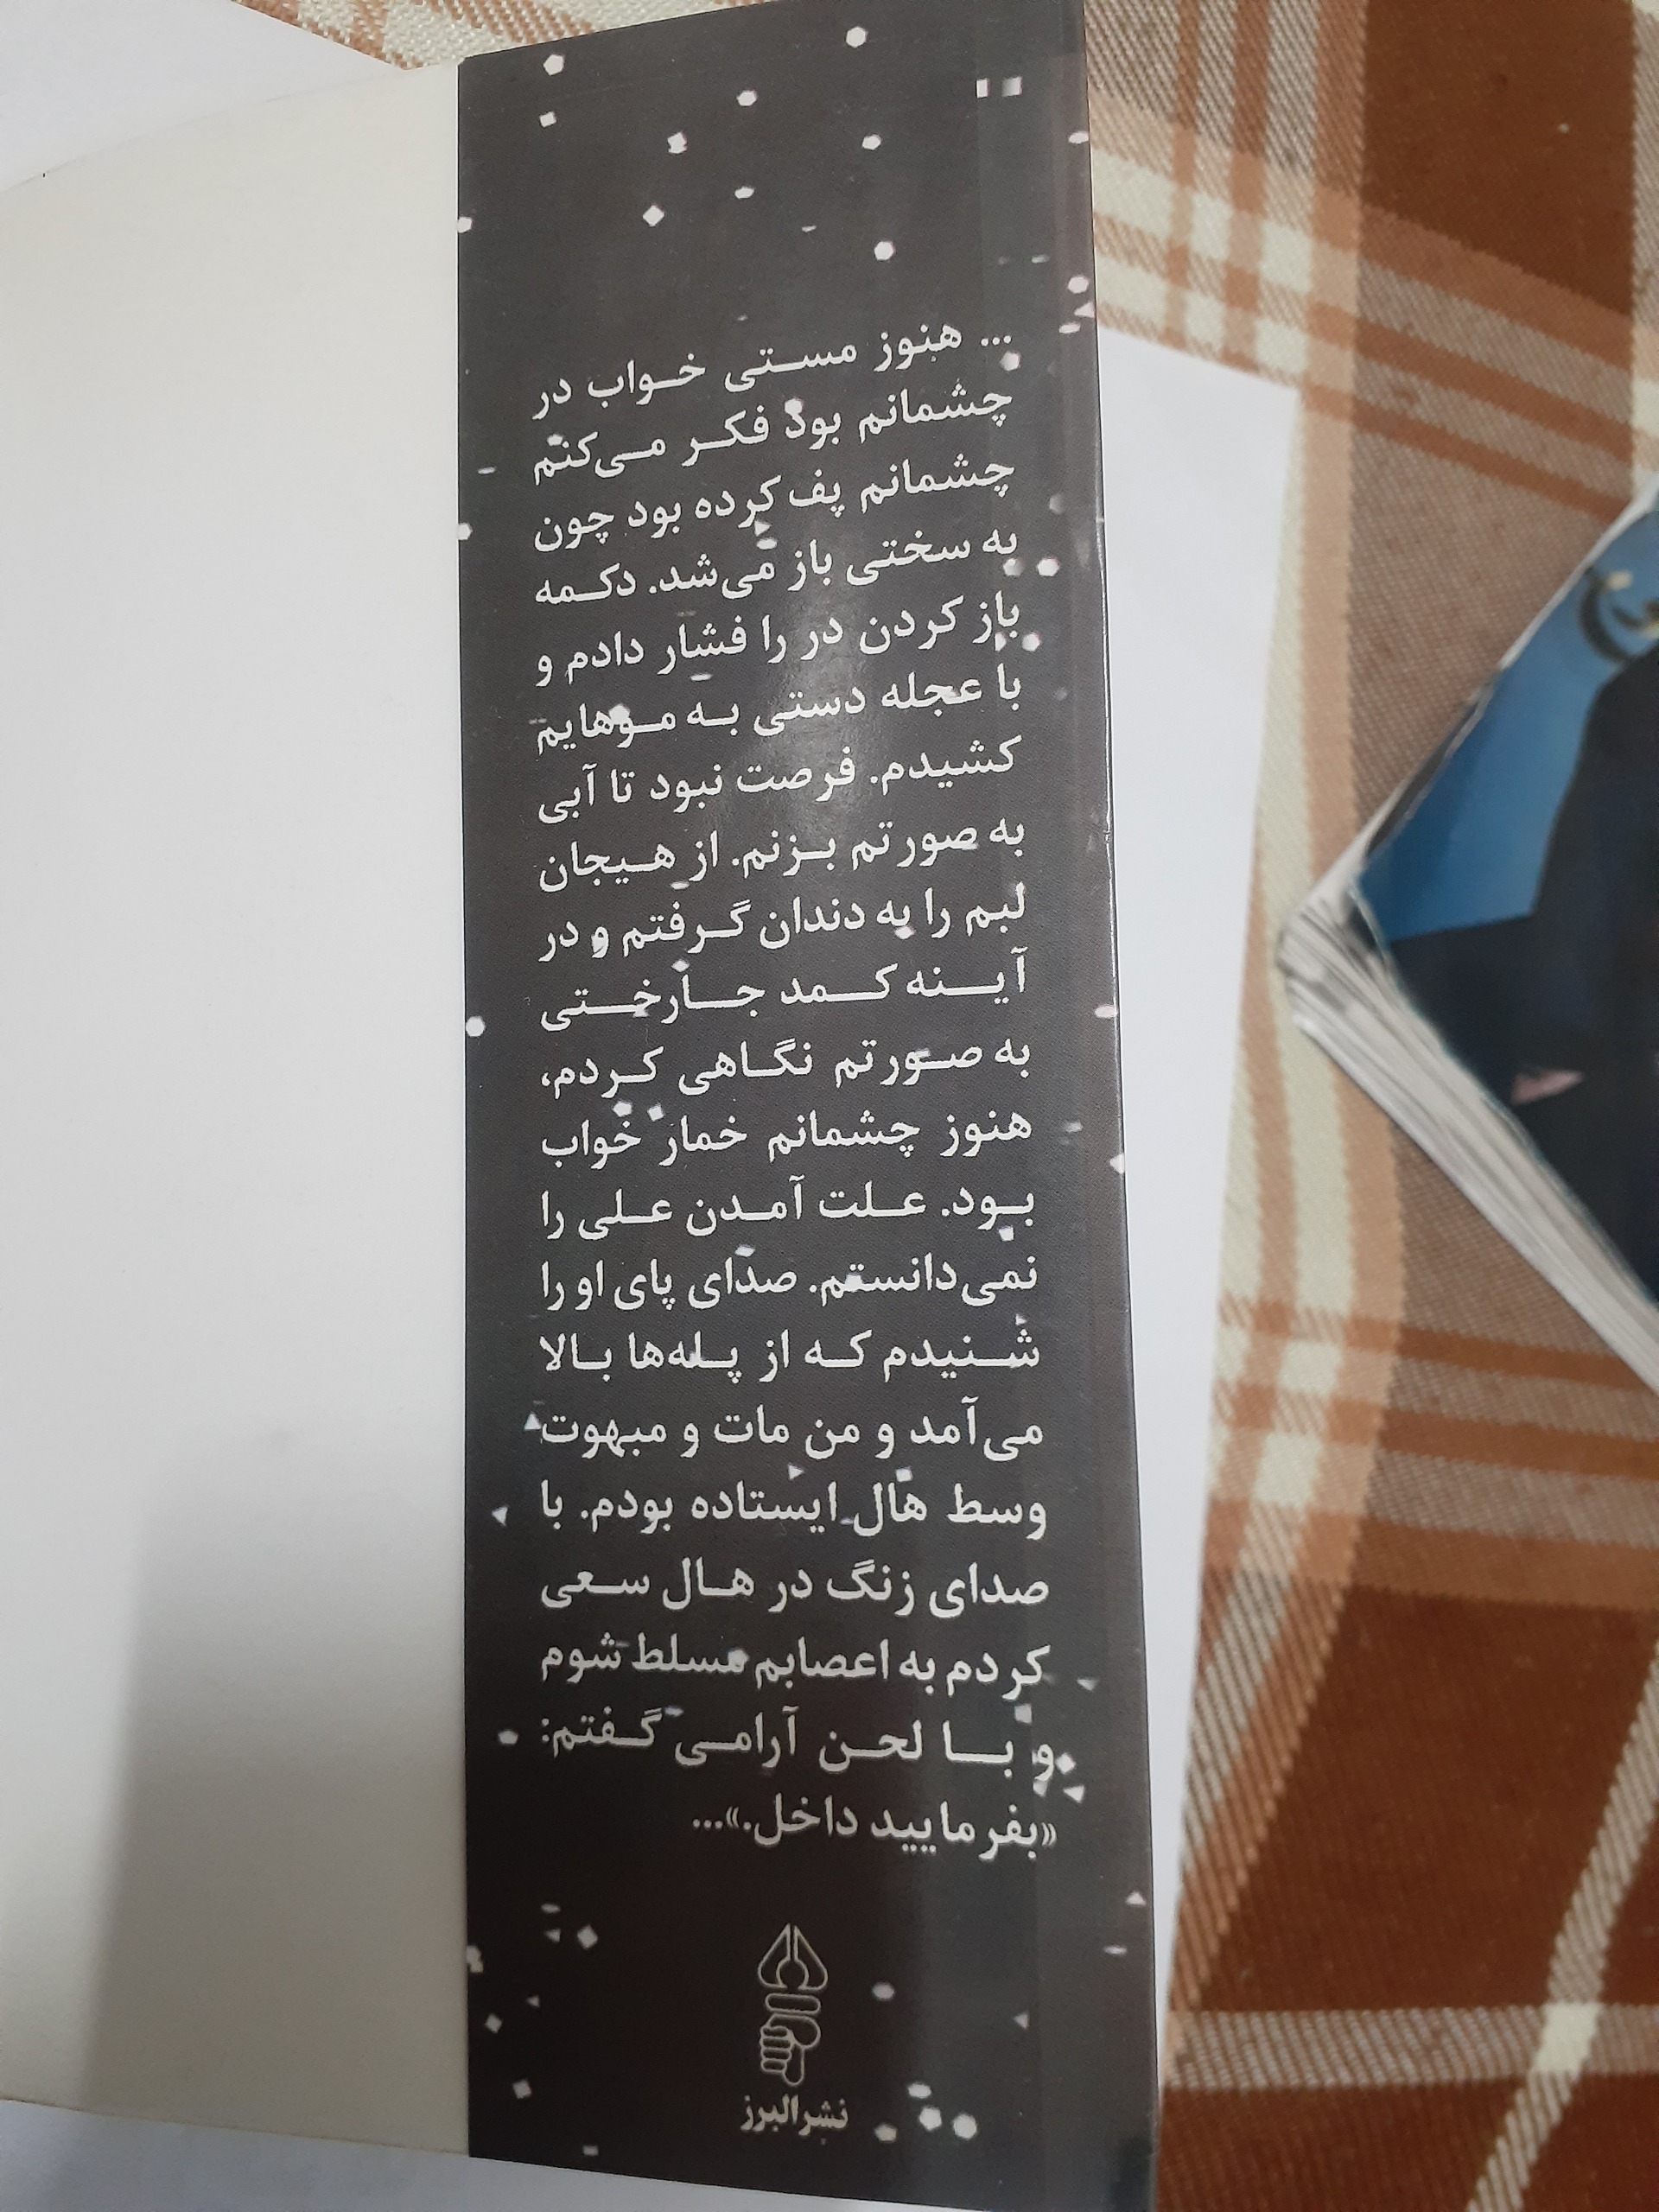 ... هنوز مستی خواب در
چشمانم بود فکر می‌کنم
چشمانم پف کرده بود چون
به سختی باز می‌شد. دکمه
باز کردن در را فشار دادم و
با عجله دستی به موهایم
کشیدم. فرصت نبود تا آبی
به صورتم بزنم. از هیجان
لبم را به دندان گرفتم و در
آینه کمد جارختی
به صورتم نگاهی کردم،
هنوز چشمانم خمار خواب
بود. علت آمدن علی را
نمی‌دانستم. صدای پای او را
شنیدم که از پله‌ها بالا
می‌آمد و من مات و مبهوت
وسط هال ایستاده بودم. با
صدای زنگ در هال سعی
کردم به اعصابم مسلط شوم
و با لحن آرامی گفتم:
«بفرمایید داخل.»...
نشر البرز